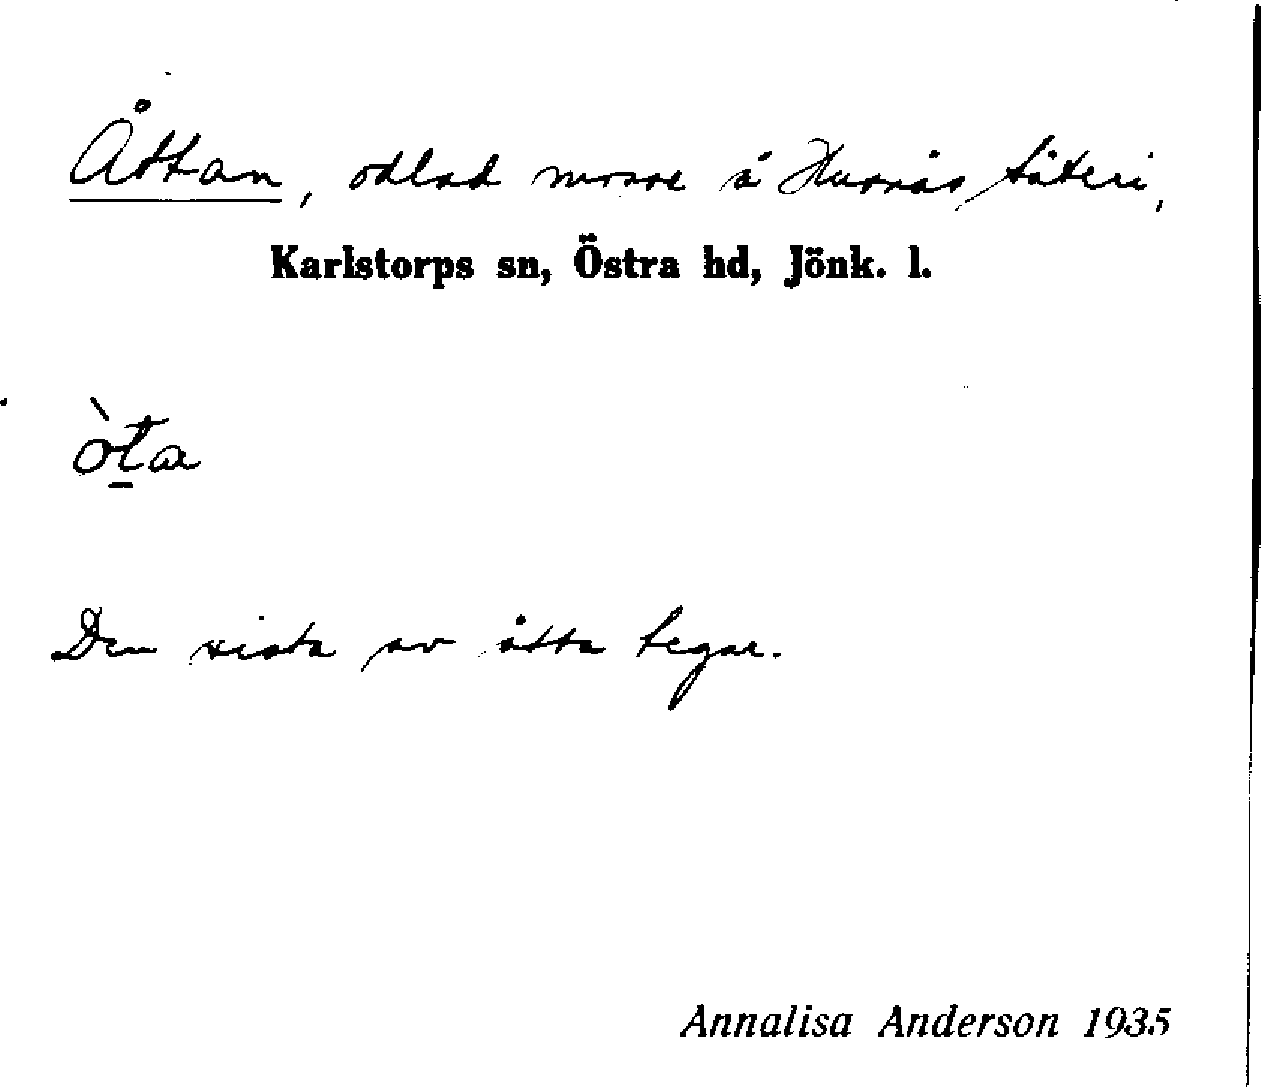 Åttan, odlad mosse å Hurnås säteri,
Karlstorps sn, Östra hd, Jönk. l.
òta
Den sista av åtta tegar.
Annalisa Anderson 1935